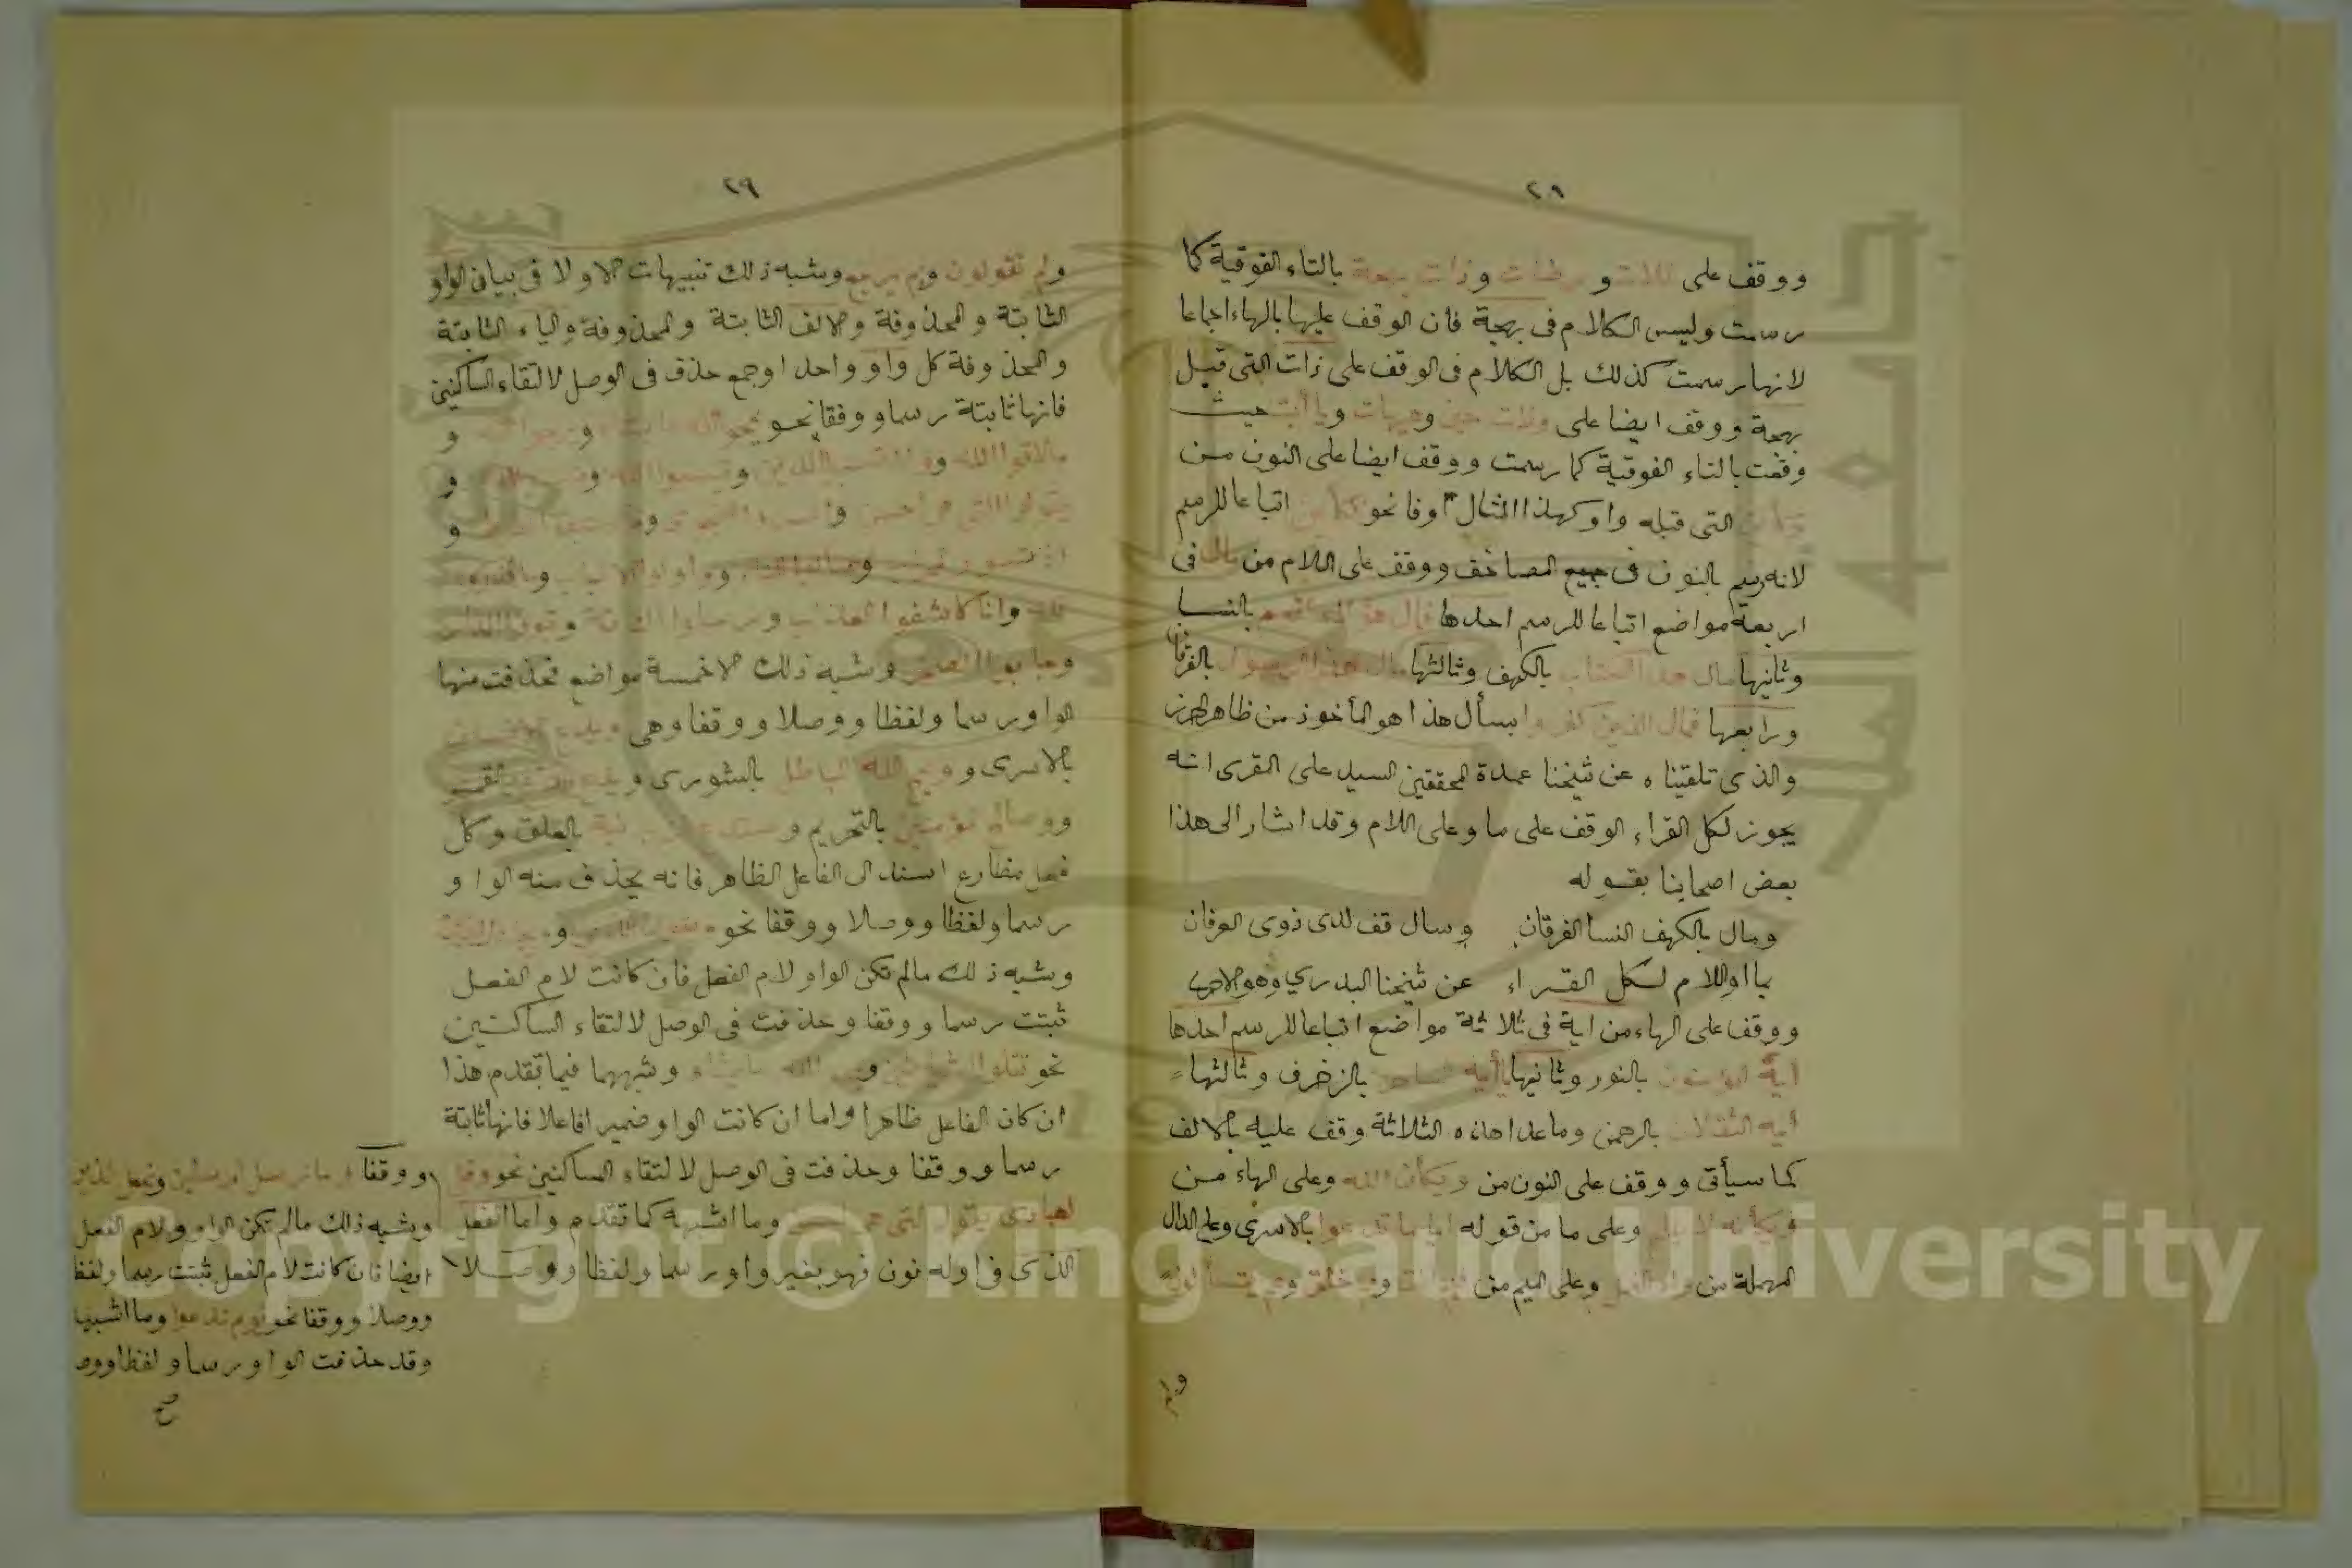 ٢٨
ووقف على اللات و مرضات وذات بهجة بالتاء الفوقية كما
رسمت وليس الكلام فى بهجة فان الوقف عليها بالهاء اجماعا
لانها رسمت كذلك بل الكلام فى الوقف على ذات التى قبل
بهجة ووقف ايضا على ولات حين وهيهات ويا أبت حيث
وقفت بالتاء الفوقية كما رسمت ووقف ايضا على النون من
التى قبله واو كهذا المثال اوفا نحو فكأين اتباعا للرسم
لانه رسم بالنون فى جميع المصاحف ووقف على اللام من مال فى
اربعة مواضع اتباعا للرسم احدها فمال هؤلاء القوم بالنسا
وثانيها مال هذا الكتاب بالكهف وثالثها مال هذا الرسول بالفرقان
ورابعها فمال الذين كفروا بسأل هذا هو المأخوذ من ظاهر الحرز
والذى تلقيناه عن شيخنا عمدة المحققين السيد على المقرى انه
يجوز لكل القراء الوقف على ما وعلى اللام وقد اشار الى هذا
بعض اصحابنا بقوله
ومال بالكهف النسا الفرقان وسال قف لدى ذوى العرفان
بما او اللام لكل القراء عن شيخنا البدرى وهو الاحرى
ووقف على الهاء من اية فى ثلاثة مواضع اتباعا للرسم احدها
أيه المؤمنون بالنور وثانيها يا أيه الساحر بالزخرف وثالثها
أيه الثقلان بالرحمن وماعدا هذه الثلاثة وقف عليه بالالف
كما سيأتى ووقف على النون من ويكأن الله وعلى الهاء من
ويكأنه لا يفلح وعلى ما من قوله ايا ما تدعوا بالاسرى وعلى الدال
المهملة من واد النمل وعلى الميم من فيم انت ومم خلق وعم يتسألون
ولم
٢٩
ولم تقولون وبم يرجع وشبه ذلك تنبيهات الاولا فى بيان الواو
الثابتة والمحذوفة والالف الثابتة والمحذوفة والياء الثابتة
والمحذوفة كل واو واحد اوجمع حذف فى الوصل لالتقاء الساكنين
فانها ثابتة رسما ووقفا نحو يمحو الله ما يشاء و يرجوا الله و
ملاقوا الله و
يقولوا التى هى احسن و
و
وانا كاشفوا العذاب و مرسلوا الناقة و
وجابوا الصخر وشبه ذلك الا خمسة مواضع فحذفت منها
الواو رسما ولفظا ووصلا ووقفا وهى ويدع الانسان
بالاسرى و ويمح الله الباطل بالشورى و يدع بالقمر
ووصالح المؤمنين بالتحريم و سندع الزبانية بالعلق وكل
فعل مضارع اسند الى الفاعل الظاهر فانه يحذف منه الواو
رسما ولفظا ووصلا ووقفا نحو
وشبه ذلك مالم تكن الواو لام الفعل فان كانت لام الفعل
ثبتت رسما ووقفا وحذفت فى الوصل لالتقاء الساكنين
نحو تتلوا الشياطين و يمحو الله ما يشاء وشبههما فيما تقدم هذا
ان كان الفاعل ظاهرا واما ان كانت الواو ضميرا فاعلا فانها ثابتة
رسما ووقفا وحذفت فى الوصل لالتقاء الساكنين نحو وقل
لعبادى يقولوا التى هى احسن وما اشبهه كما تقدم واما الفعل
الذى فى اوله نون فهو بغير واو رسما ولفظا ووصلا
ووقفا وما نرسل المرسلين ونجعل الذين
وشبه ذلك مالم تكن الواو ولام الفعل
ايضا فان كانت لام الفعل ثبتت رسما ولفظ
ووصلا ووقفا نحو يوم ندعوا وما اشبها
وقد حذفت الواو رسما ولفظا ووص
صح
Copyright © King Saud University